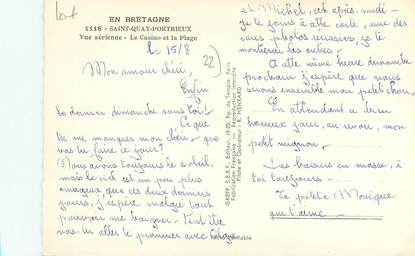 EN BRETAGNE
1118 - SAINT-QUAY-PORTRIEUX
Vue aérienne - Le Casino et la Plage
Le 15/8
22
Mon amour chéri,
Enfin
le dernier dimanche sans toi !
Ce que
tu me manques mon chéri - que
vas-tu faire ce jour ?
Nous avons toujours le soleil,
mais le ciel est un peu plus
nuageux que ces deux derniers
jours, j'espère malgré tout
pouvoir me baigner. Peut-être
vas-tu aller te promener avec
et Michel, cet après-midi -
je te joins à cette carte, une des
rares photos réussies, je te
montrerai les autres.
A cette même heure dimanche
prochain j'espère que nous
serons ensemble mon petit chou.
En attendant ce
heureux jour, au revoir, mon
petit mignon.
Des baisers en masse, à
toi toujours -
Ta petite Monique
qui t'aime -